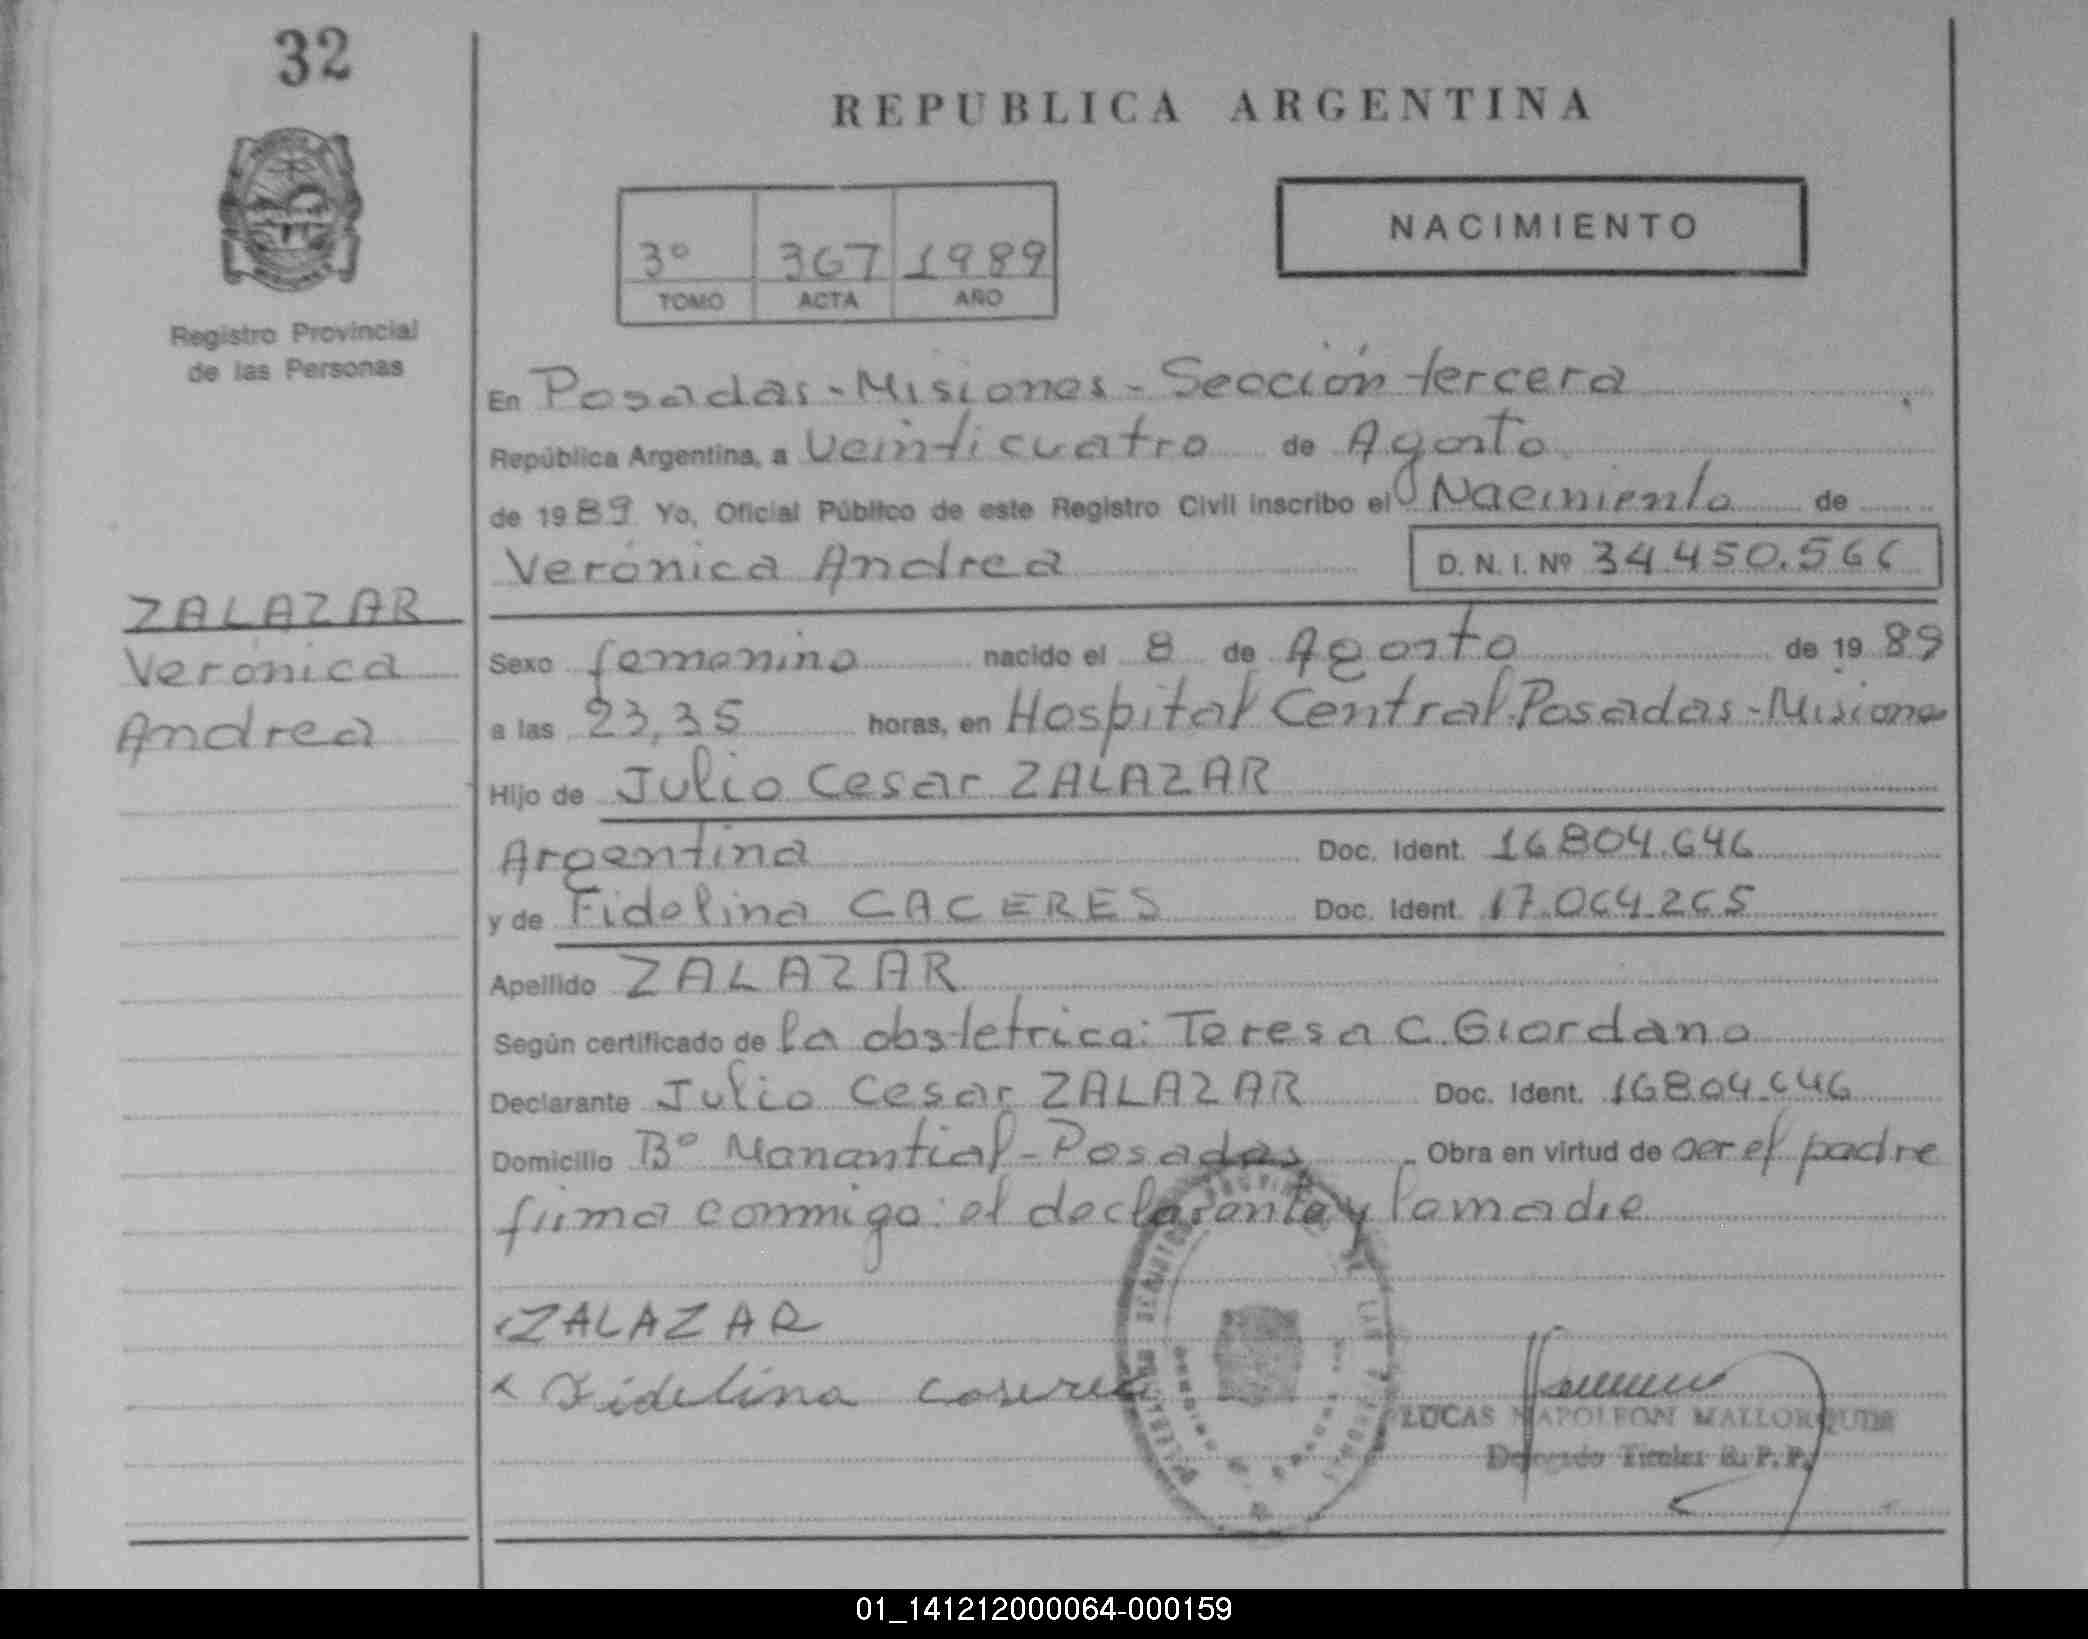 32
REPUBLICA ARGENTINA
NACIMIENTO
3º 367 1989
TOMO ACTA AÑO
Registro Provincial
de las Personas
En Posadas - Misiones - Sección tercera
República Argentina, a Veinticuatro de Agosto
de 1989 Yo, Oficial Público de este Registro Civil inscribo el Nacimiento de
Verónica Andrea D. N. I. Nº 34.450.566
ZALAZAR
Verónica
Andrea
Sexo femenino nacido el 8 de Agosto de 1989
a las 23,35 horas, en Hospital Central Posadas - Misiones
Hijo de Julio Cesar ZALAZAR
Argentina Doc. Ident. 16.804.646
y de Fidelina CACERES Doc. Ident. 17.064.265
Apellido ZALAZAR
Según certificado de la obstetrica: Teresa C. Giordano
Declarante Julio Cesar ZALAZAR Doc. Ident. 16.804.646
Domicilio Bº Manantial - Posadas Obra en virtud de ser el padre
firma conmigo: el declarante y la madre
ZALAZAR
Fidelina
LUCAS NAPOLEON
Delegado Titular R. P. P.
01_141212000064-000159